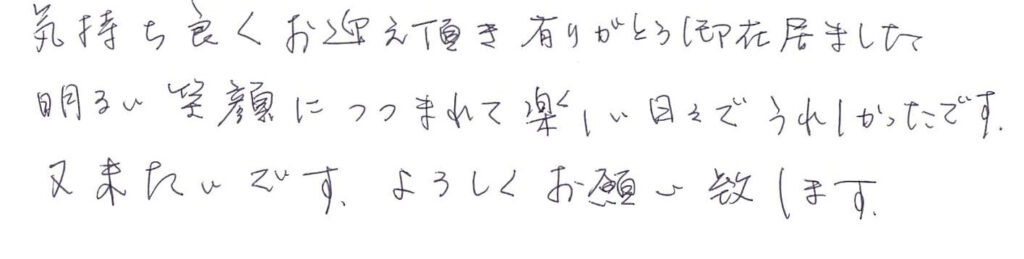 気持ち良くお迎え頂き有りがとう御在居ました
明るい笑顔につつまれて楽しい日々でうれしかったです.
又来たいです. よろしくお願い致します.